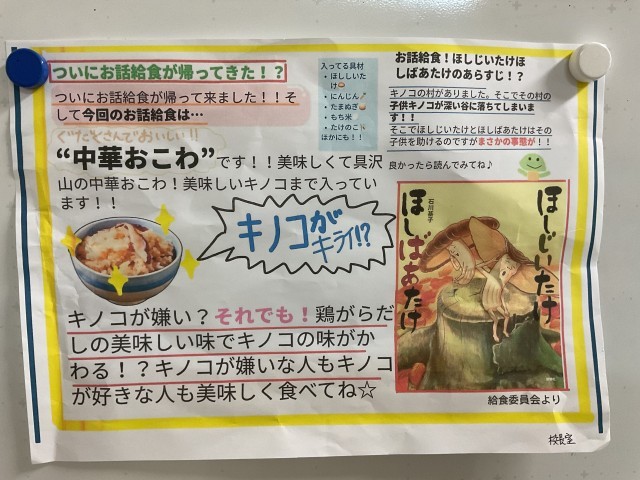 ついにお話給食が帰ってきた！？
ついにお話給食が帰って来ました！！そ
して今回のお話給食は…
ぐだくさんでおいしい!!
“中華おこわ”です！！美味しくて具沢
山の中華おこわ！美味しいキノコまで入ってい
ます！！
入ってる具材
・ほししいたけ
・にんじん
・たまねぎ
・もち米
・たけのこ
ほかにも！！
お話給食！ほしじいたけほ
しばあたけのあらすじ！？
キノコの村がありました。そこでその村の
子供キノコが深い谷に落ちてしまいま
す！！
そこでほしじいたけとほしばあたけはその
子供を助けるのですがまさかの事態が！！
良かったら読んでみてね♪
キノコが
キライ!?
キノコが嫌い？それでも！鶏がらだ
しの美味しい味でキノコの味がか
わる！？キノコが嫌いな人もキノコ
が好きな人も美味しく食べてね☆
ほしじいたけ
ほしばあたけ
石川基子
給食委員会より
校長室